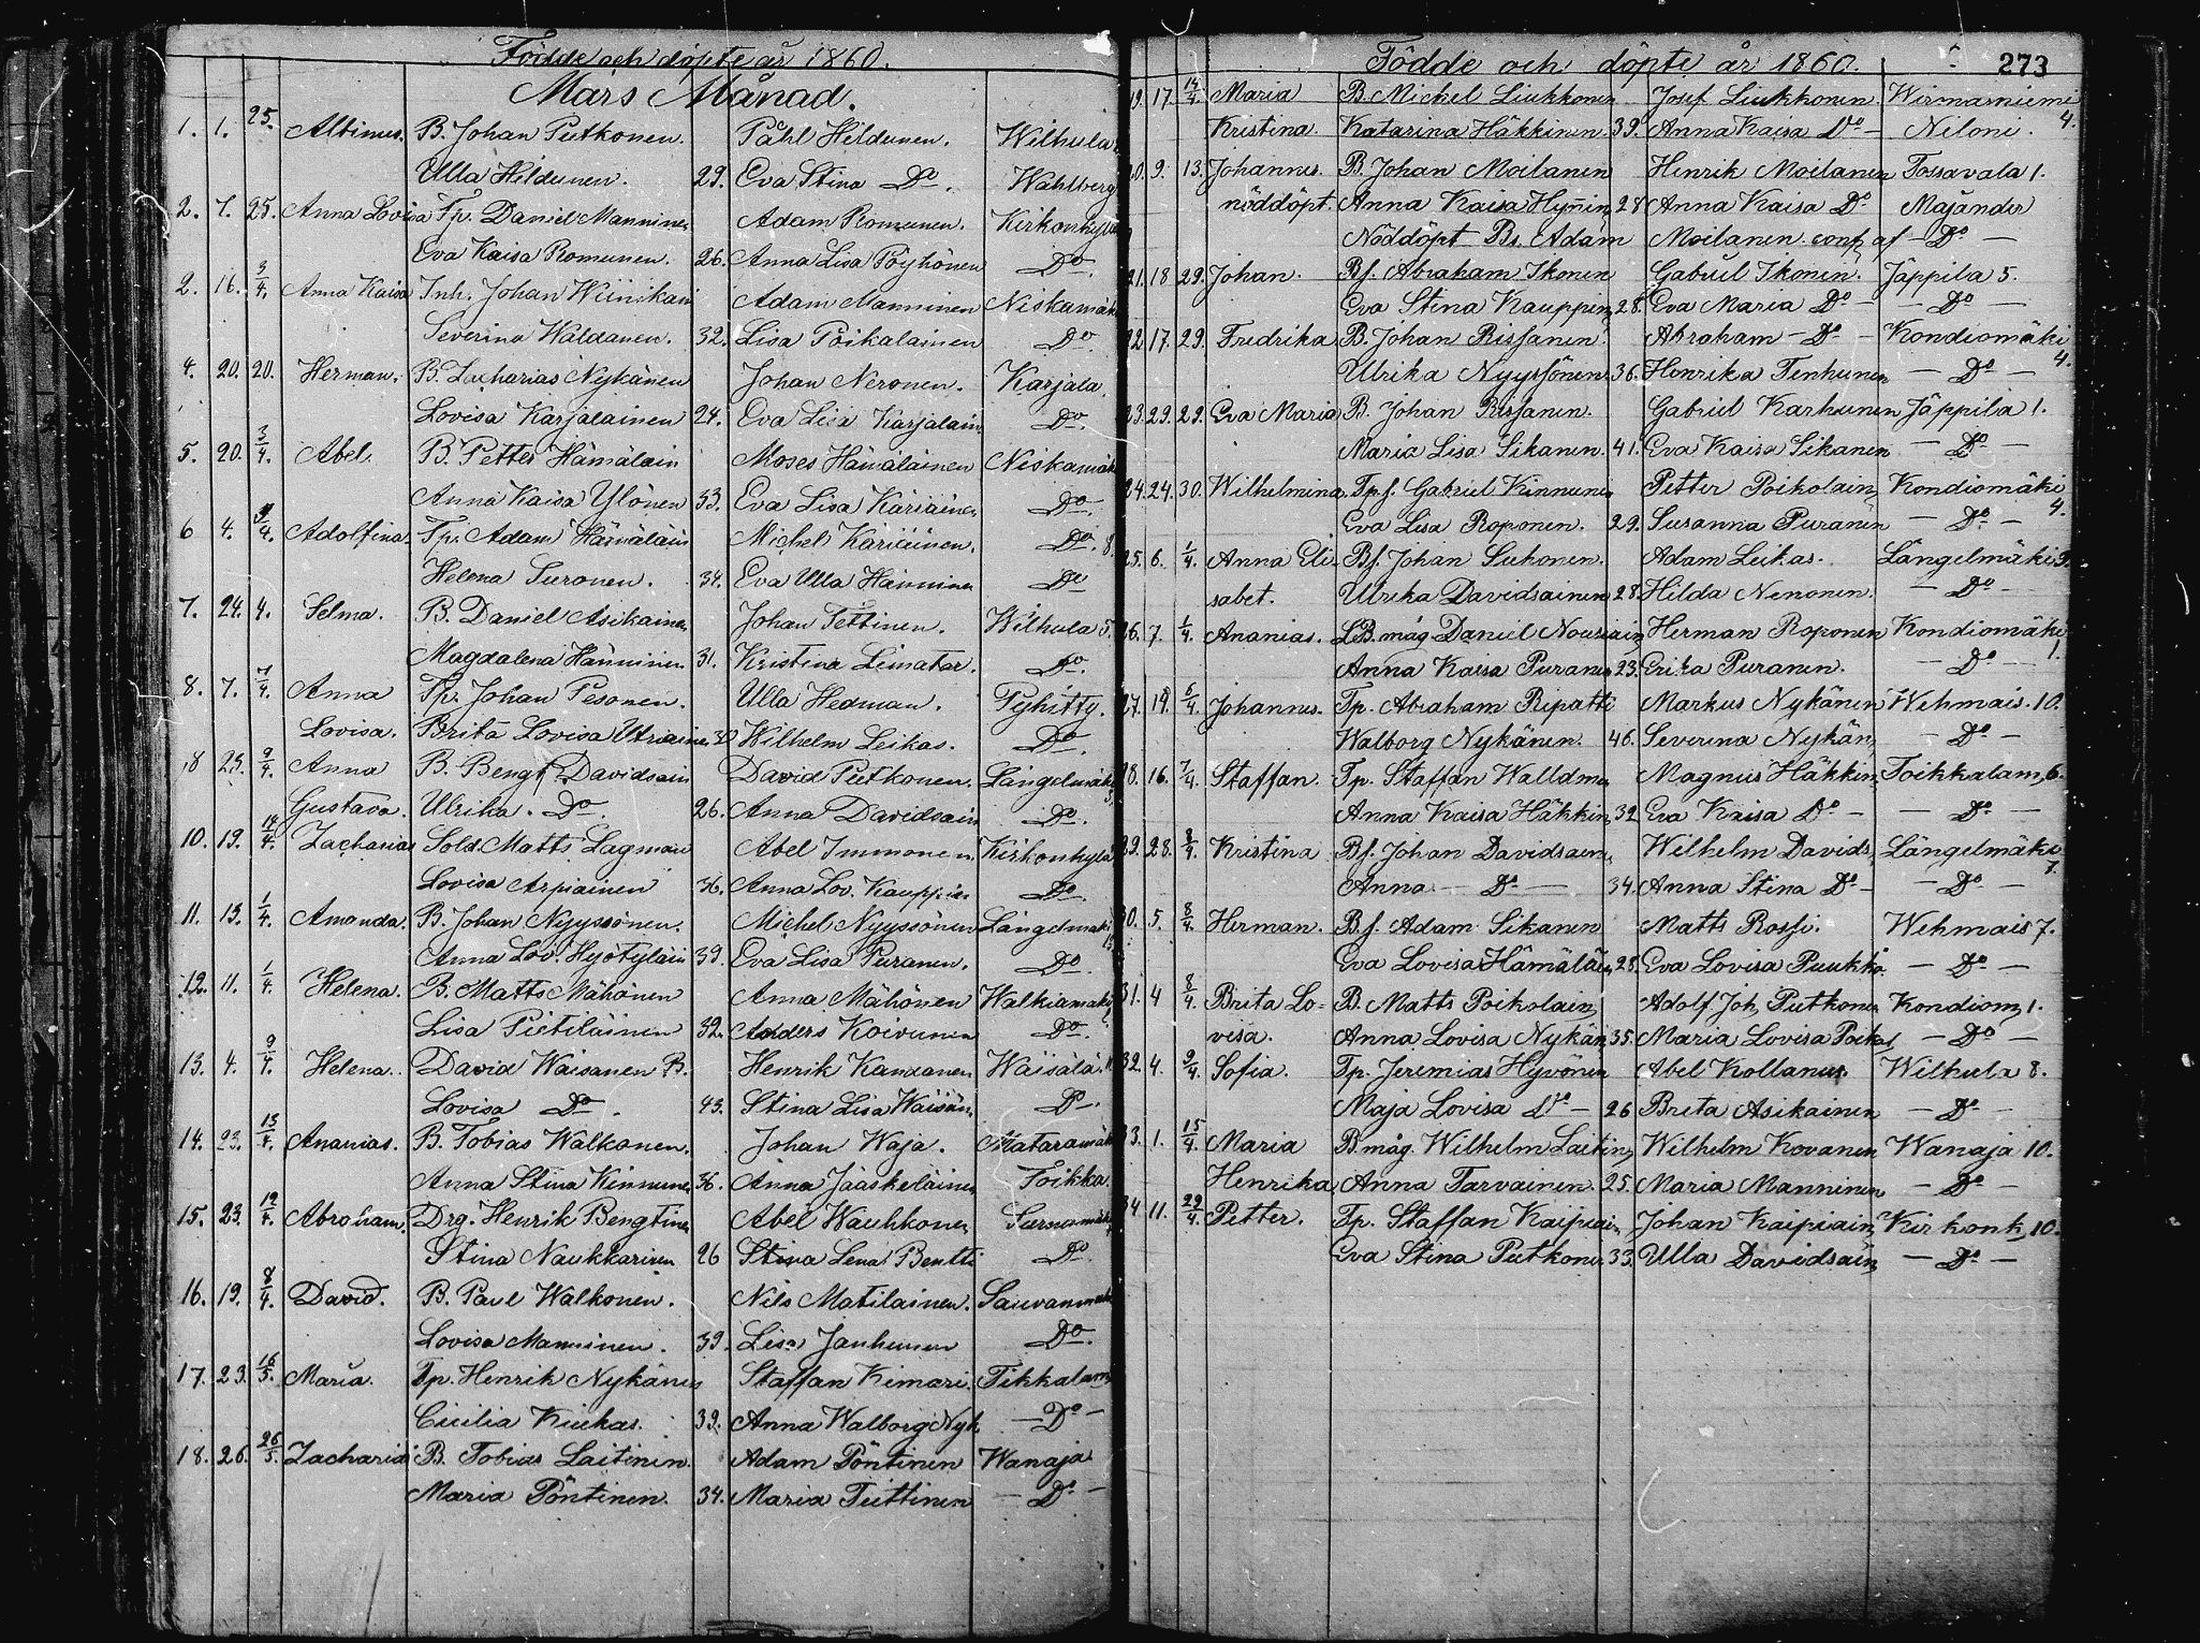 Födde och döpte år 1860.
Mars Månad.
1. 1. 25. Albinus. B. Johan Putkonen. Påhl Hildunen. Wilhula
Ulla Hildunen. 29. Eva Stina Do. Wahlberg
2. 7. 25. Anna Lovisa Tp. Daniel Manninen Adam Romunen. Kirkonkylä
Eva Kaisa Romunen. 26. Anna Lisa Pöyhönen Do.
2. 16. 3/4. Anna Kaisa Inh. Johan Wiinikain Adam Manninen Niskamäk
Severina Waldanen. 32. Lisa Poikalainen Do.
4. 20. 20. Herman. B. Zacharias Nykänen Johan Neronen. Karjala.
Lovisa Karjalainen 24. Eva Lisa Karjalain Do.
5. 20. 3/4. Abel. B. Petter Hämäläin Moses Hämäläinen Niskamäk
Anna Kaisa Ylönen 33. Eva Lisa Käriäinen Do.
6 4. /4. Adolfina. Tp. Adam Hämäläin Michel Käriäinen. Do. 8.
Helena Suronen. 34. Eva Ulla Hänninen Do
7. 24. 4. Selma. B. Daniel Asikainen Johan Tettinen. Wilhula 5.
Magdalena Hänninen 31. Kristina Limatar. Do.
8. 7. 7/4. Anna Tp. Johan Pesonen. Ulla Hedman. Pyhitty.
Lovisa. Brita Lovisa Utriainen 32 Wilhelm Leikas. Do.
18 25. 9/4. Anna B. Bengt Davidsain David Putkonen. Längelmäki
Gustava. Ulrika. Do. 26. Anna Davidsain Do.
10. 19. 14/4. Zacharias Sold. Matts Lagman Abel Immonen Kirkonkylä
Lovisa Arpiainen 36. Anna Lov. Kauppin Do.
11. 13. 1/4. Amanda. B. Johan Nyyssönen. Michel Nyyssönen Längelmäki
Anna Lov. Hyötyläin 39. Eva Lisa Puranen. Do.
12. 11. 1/4. Helena. B. Matts Mähönen Anna Mähönen Walkiamäki
Lisa Pietiläinen 32. Anders Koivunen Do.
13. 4. 9/4. Helena. David Waisanen B. Henrik Kanxanen Wäisälä.
Lovisa Do. 43. Stina Lisa Waisän Do.
14. 23. 13/4. Ananias. B. Tobias Walkonen. Johan Waja. Mataramäk
Anna Stina Kinnunen 36. Anna Jääskeläinen Toikka.
15. 23. 12/4. Abraham. Drg. Henrik Bengtinen Abel Wauhkonen Surnumäki
Stina Naukkarinen 26 Stina Lena Bentti Do.
16. 19. 8/4. David. B. Paul Walkonen. Nils Matilainen. Sauvanmäki
Lovisa Manninen. 39. Lisa Janhunen Do.
17. 23. 16/5. Maria. Tp. Henrik Nykänen Staffan Kimari. Tikkalam
Cicilia Kiukas. 39. Anna Walborg Nyk. — Do —
18. 26. 26/5. Zacharias B. Tobias Laitinen. Adam Pöntinen Wanaja
Maria Pöntinen. 34. Maria Teittinen — Do —
Födde och döpte år 1860. 273
19. 17. 14/4. Maria B. Michel Liukkonen Josef Liukkonen. Wirmaniemi
Kristina. Katarina Häkkinen. 39. Anna Kaisa Do — Niloni. 4.
20. 9. 13. Johannes. B. Johan Moilanen Henrik Moilanen Tossavala 1.
nöddöpt. Anna Kaisa Hyninn 28 Anna Kaisa Do Majander
Nöddöpt Bs. Adam Moilanen conf. af — Do —
21. 18 29. Johan. Bf. Abraham Ikonen Gabriel Ikonen. Jäppilä 5.
Eva Stina Kauppin, 28. Eva Maria Do — — Do —
22. 17. 29. Fredrika B. Johan Rissanen. Abraham — Do — Kondiomäki
Ulrika Nyyssönen 36. Henrika Tenhunen — Do — 4.
23. 29. 29. Eva Maria B. Johan Rissanen. Gabriel Karhunen Jäppilä 1.
Maria Lisa Sikanen. 41. Eva Kaisa Sikanen — Do —
24. 24. 30. Wilhelmina Tpf. Gabriel Kinnunen Petter Poikolain, Kondiomäki
Eva Lisa Roponen. 29. Susanna Puranen — Do — 4.
25. 6. 1/4. Anna Eli- Bf. Johan Suhonen. Adam Leikas. Längelmäki 9.
sabet. Ulrika Davidsainen 28. Hilda Nenonen. — Do —
26. 7. 1/4. Ananias. LB. måg Daniel Nousiain, Herman Roponen Kondiomäki
Anna Kaisa Puranen 23. Erika Puranen. — Do — 1.
27. 19. 5/4. Johannes. Tp. Abraham Ripatti Markus Nykänen Wehmais. 10.
Walborg Nykänen. 46. Severina Nykän, — Do —
28. 16. 7/4. Staffan. Tp. Staffan Walldman Magnus Häkkin, Toikkalam, 6.
Anna Kaisa Häkkin, 32 Eva Kaisa Do — — Do —
29. 28. 8/4. Kristina Bf. Johan Davidsain, Wilhelm Davids, Längelmäki
Anna — Do — 34. Anna Stina Do — — Do — 7.
30. 5. 8/4. Herman. B.f. Adam Sikanen Matts Rossi. Wehmais 7.
Eva Lovisa Hämäläin, 28. Eva Lovisa Puukko — Do —
31. 4 8/4. Brita Lo- B. Matts Poikolain, Adolf Joh. Putkonen Kondiom, 1.
visa. Anna Lovisa Nykän, 35. Maria Lovisa Poikol, — Do —
32. 4. 9/4. Sofia. Tp. Jeremias Hyvönen Abel Kollanus. Wilhula 8.
Maja Lovisa Do — 26 Brita Asikainen — Do —
33. 1. 15/4. Maria B. måg. Wilhelm Laitin, Wilhelm Kovanen Wanaja 10.
Henrika Anna Tarvainen. 25. Maria Manninen — Do —
34 11. 29/4. Petter. Tp. Staffan Kaipiain, Johan Kaipiain, Kirkonk, 10.
Eva Stina Putkonen 33. Ulla Davidsain, — Do —